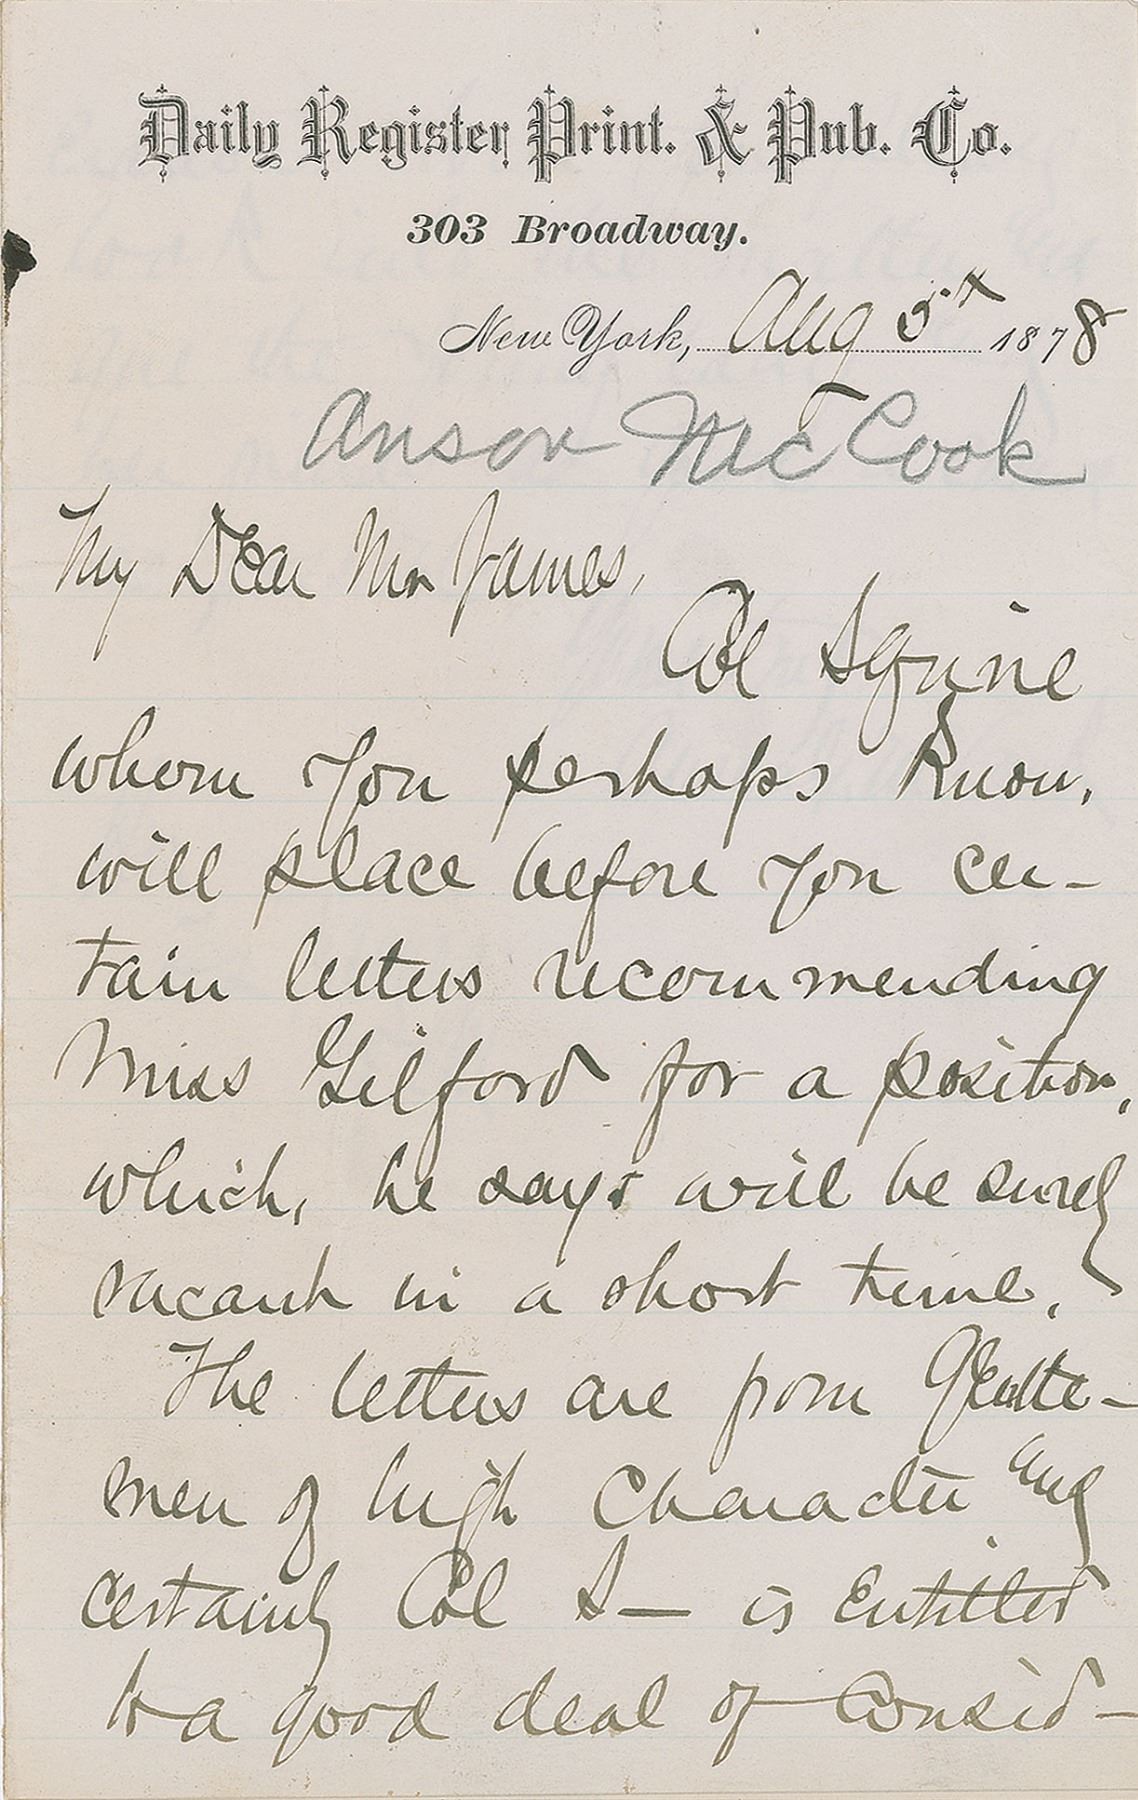 Daily Register Print. & Pub. Co.
303 Broadway.
New York, Aug 5th 1878
Anson McCook
My Dear Mr James,
Col Squire
whom you perhaps know,
will place before you cer-
tain letters recommending
Miss Gilford for a position,
which, he says will be surely
vacant in a short time.
The letters are from Gentle-
men of high Character and
certainly Col S— is Entitled
to a good deal of Consid-